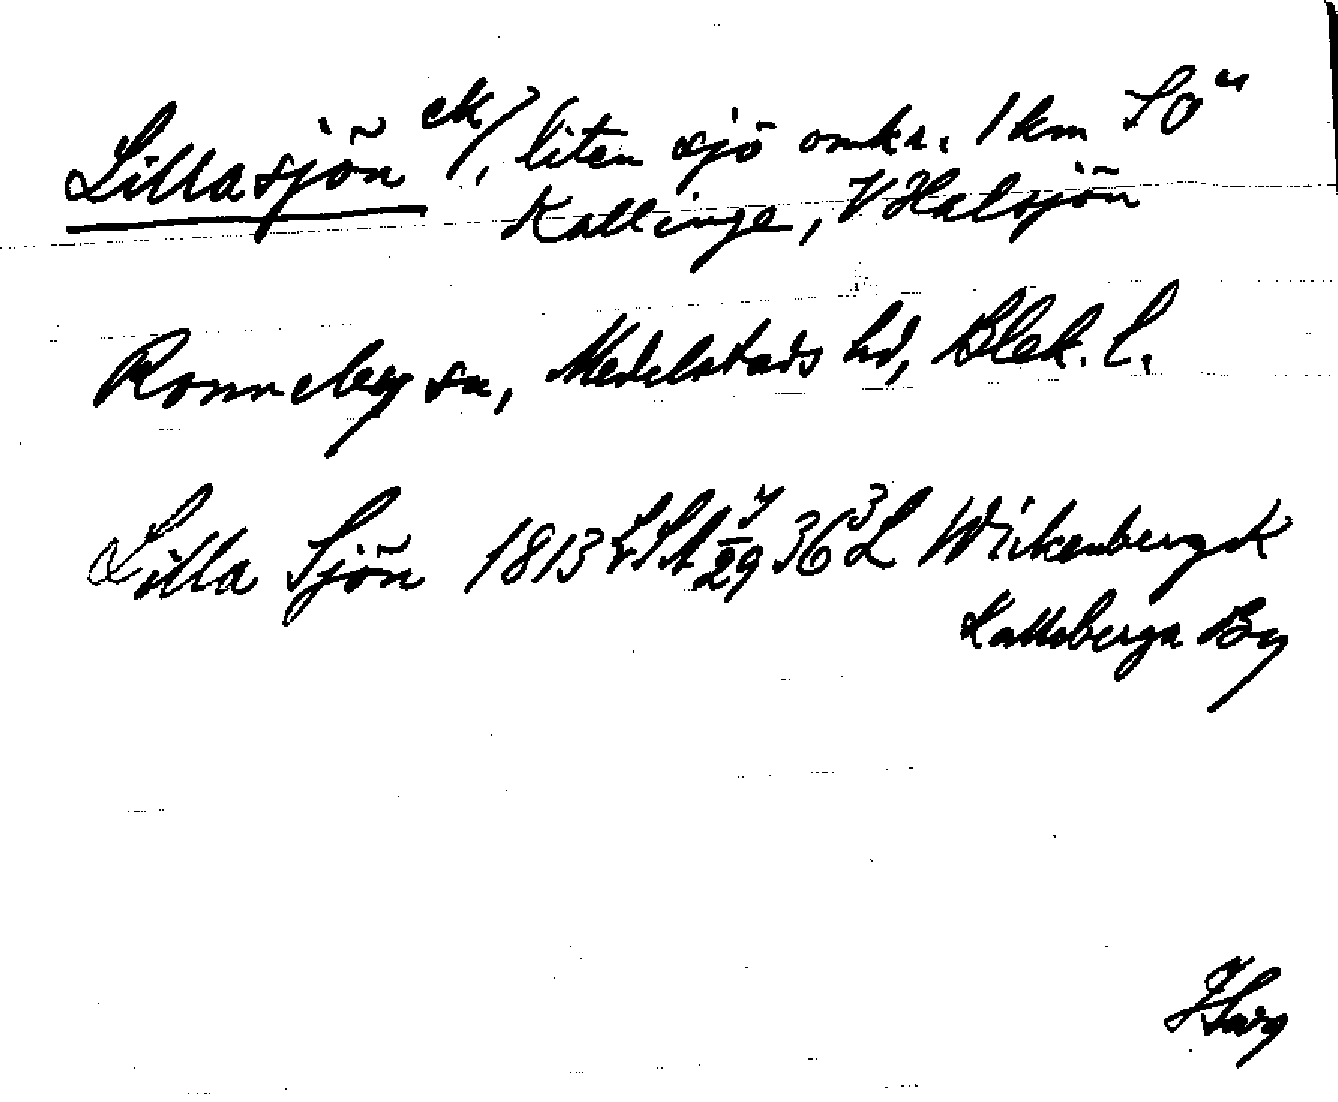 Lillasjön ek/, liten sjö omkr. 1 km SO
Kallinge, V Halsjön
Ronneby sn, Medelstads hd, Blek. l.
Lilla Sjön 1813 LSA 36 3 L Wirkenberg k
Kallsberga By